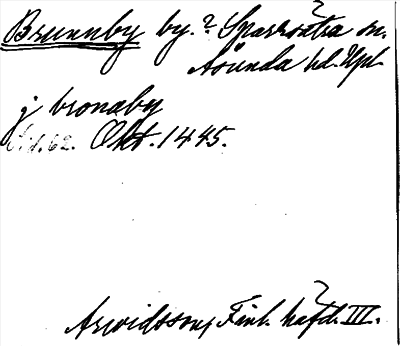 Brunnby by.? Sparrsätra sn.
Åsunda hd. Upl.
j bronaby
Sid. 62. Okt. 1445.
Arwidsson, Finl. häfd. III.